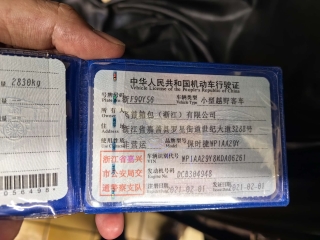 2830kg
中华人民共和国机动车行驶证
Vehicle License of the People's Republic of China
号牌号码 浙F90Y58 车辆类型 Vehicle Type 小型越野客车
所有人 箱包（浙江）有限公司
浙江省嘉善县罗星街道世纪大道3268号
使用性质 非营运 品牌型号 Model 保时捷WP1AA29Y
浙江省嘉兴市公安局交通警察支队
车辆识别代号 VIN WP1AA29Y8KDA06261
发动机号码 Engine No. DCB304948
注册日期 2021-02-01 发证日期 2021-02-01